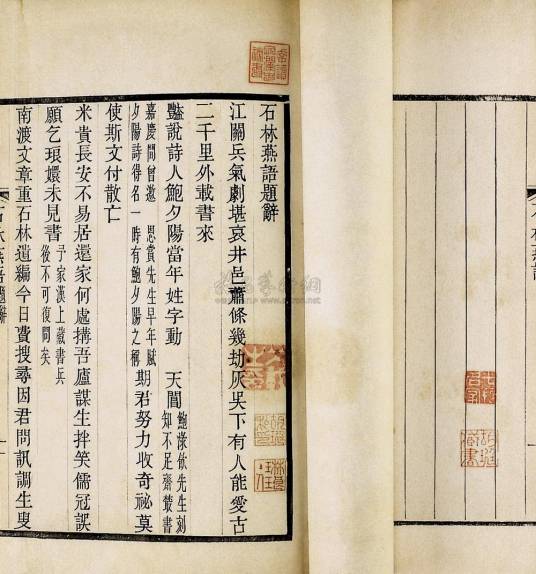 石林燕語題辭
江關兵氣劇堪哀井邑蕭條幾劫灰吳下有人能愛古
二千里外載書來
豔說詩人鮑夕陽當年姓字動 天閶鮑淥飲先生刻知不足齋叢書
嘉慶間曾邀 恩賞先生早年賦夕陽詩得名一時有鮑夕陽之稱期君努力收奇祕莫
使斯文付散亡
米貴長安不易居還家何處搆吾廬謀生拌笑儒冠誤
願乞琅嬛未見書予家漢上藏書兵後不可復問矣
南渡文章重石林遺編今日費搜尋因君問訊調生叟
石林燕語題辭
一
石林燕語